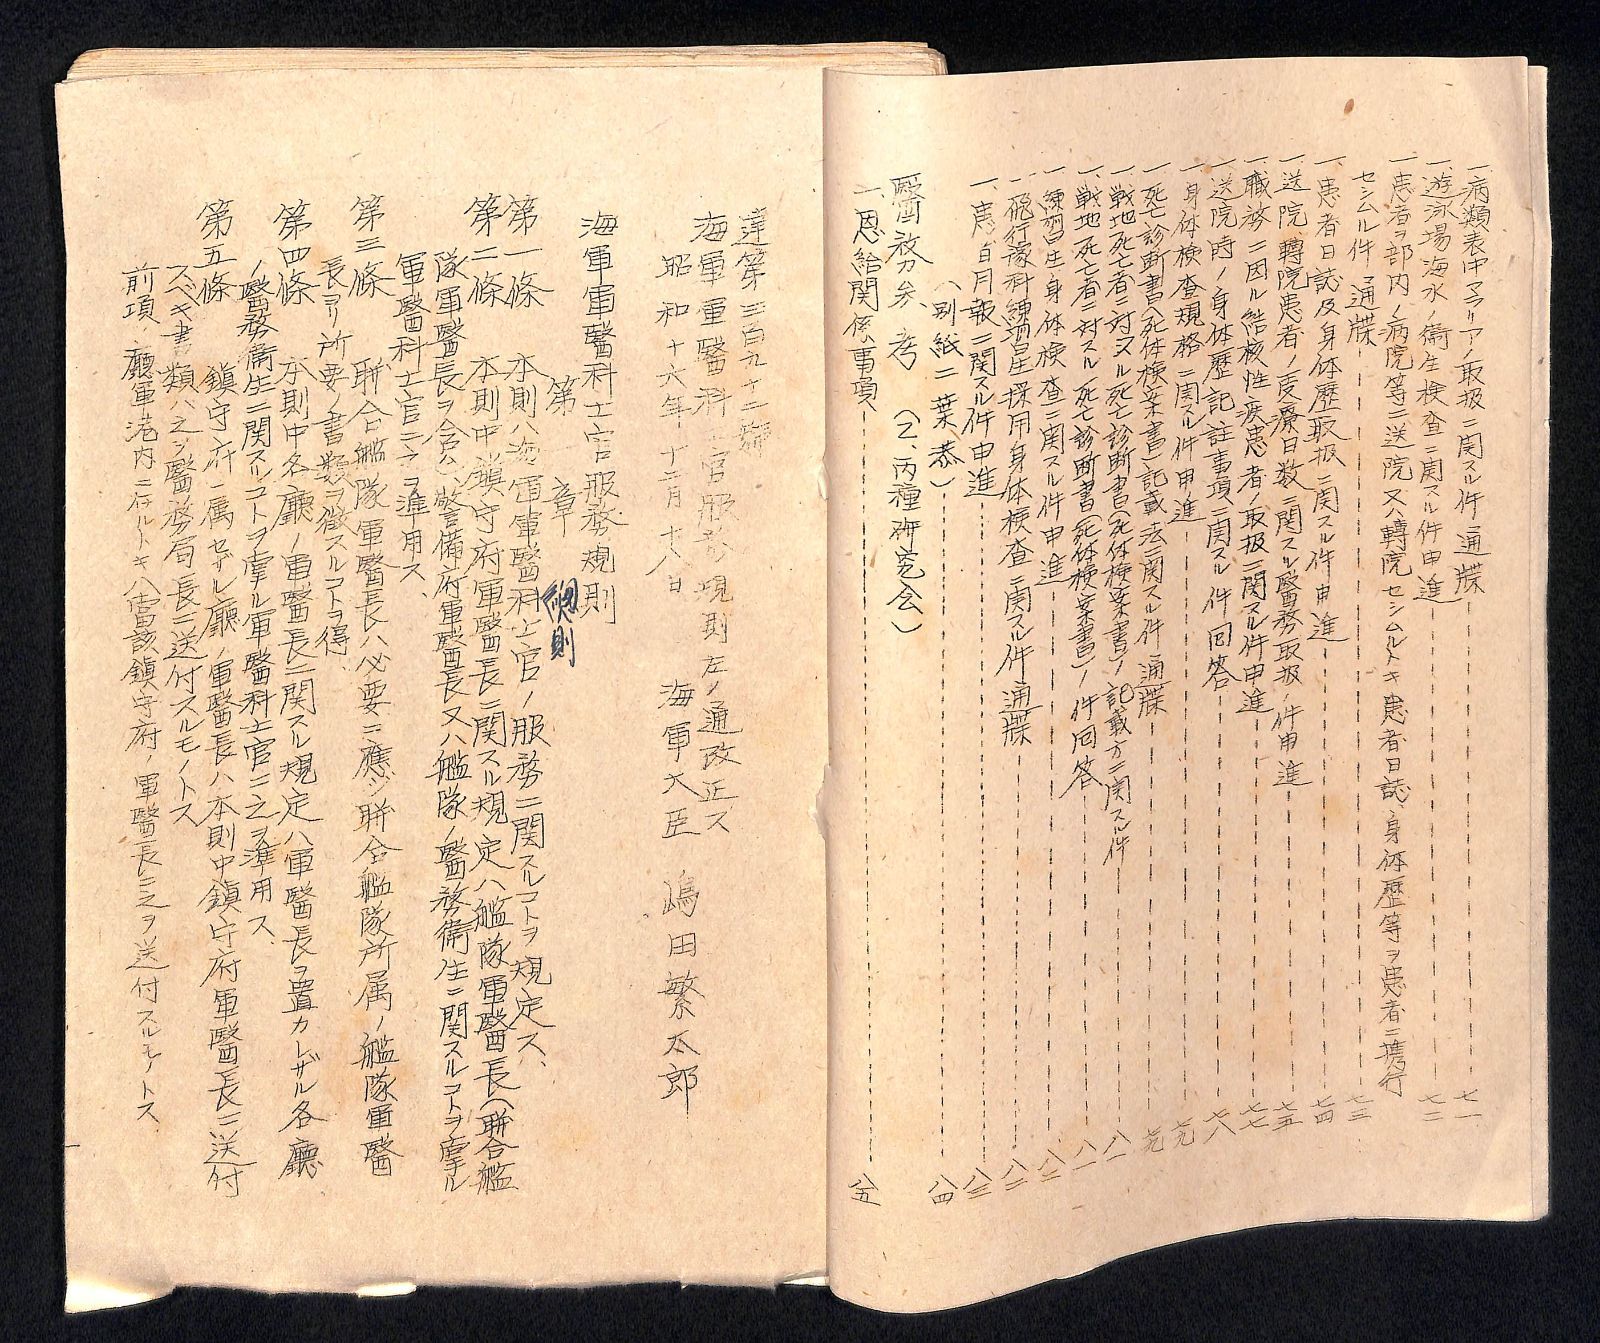 一、病類表中マラリアノ取扱ニ関スル件通牒 七一
一、遊泳場海水ノ衞生検査ニ関スル件申進 七二
一、患者ヲ部内ノ病院等ニ送院又ハ轉院セシムルトキ患者日誌、身体歴等ヲ患者ニ携行
セシムル件通牒 七三
一、患者日誌及身体歴取扱ニ関スル件申進 七四
一、送院、轉院患者ノ受療日数ニ関スル醫務取扱ノ件申進 七五
一、職務ニ因ル結核性疾患者ノ取扱ニ関スル件申進 七七
一、送院時ノ身体歴記註事項ニ関スル件回答 七八
一、身体検査規格ニ関スル件申進 七九
一、死亡診断書(死体検案書)記載法ニ関スル件通牒 七九
一、戦地死亡者ニ対スル死亡診断書(死体検案書)ノ記載方ニ関スル件 八一
一、戦地死亡者ニ対スル死亡診断書(死体検案書)ノ件回答 八一
一、練習生身体検査ニ関スル件申進 八二
一、飛行豫科練習生採用身体検査ニ関スル件通牒 八二
一、患者月報ニ関スル件申進 八三
(別紙二葉添) 八四
醫務参考 (乙、丙種研究会)
一、恩給関係事項 八五
達第三百九十二號
海軍軍醫科士官服務規則左ノ通改正ス
昭和十六年十二月十八日 海軍大臣 嶋田繁太郎
海軍軍醫科士官服務規則
第一章 總則
第一條 本則ハ海軍軍醫科士官ノ服務ニ関スルコトヲ規定ス
第二條 本則中鎮守府軍醫長ニ関スル規定ハ艦隊軍醫長(聯合艦
隊軍醫長ヲ含ム)、警備府軍醫長又ハ艦隊ノ醫務衞生ニ関スルコトヲ掌ル
軍醫科士官ニ之ヲ準用ス
第三條 聯合艦隊軍醫長ハ必要ニ應ジ聯合艦隊所属ノ艦隊軍醫
長ヨリ所要ノ書類ヲ徴スルコトヲ得
第四條 本則中各廳ノ軍醫長ニ関スル規定ハ軍醫長ヲ置カレザル各廳
ノ醫務衞生ニ関スルコトヲ掌ル軍醫科士官ニ之ヲ準用ス
第五條 鎮守府ニ属セザル廳ノ軍醫長ハ本則中鎮守府軍醫長ニ送付
スベキ書類ハ之ヲ醫務局長ニ送付スルモノトス
前項ノ廳軍港内ニ在ルトキハ當該鎮守府ノ軍醫長ニ之ヲ送付スルモノトス